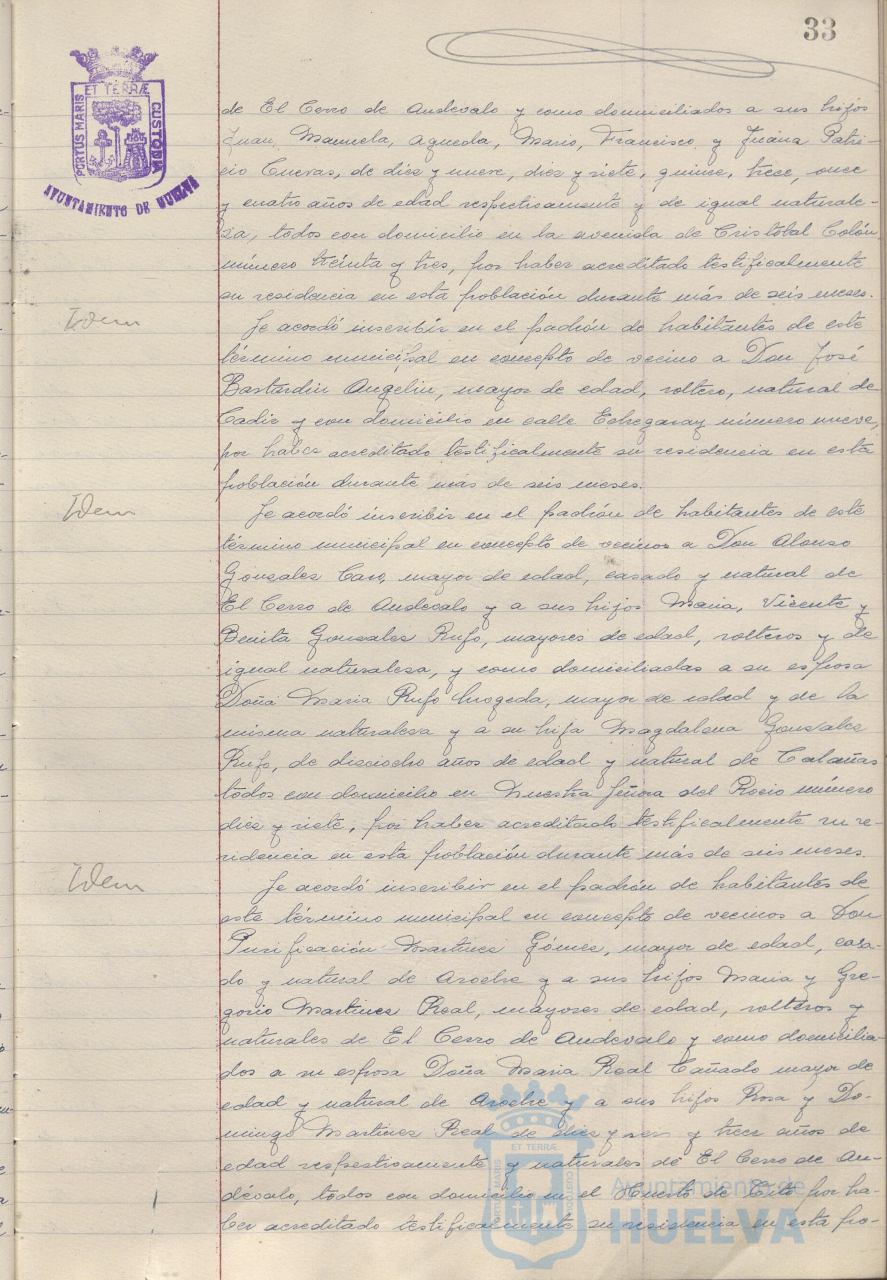 33
ET TERRÆ
PORTUS MARIS
CUSTODIA
AYUNTAMIENTO DE HUELVA
de El Cerro de Andevalo y como domiciliados a sus hijos
Juan, Manuela, Agueda, Mario, Francisco y Juana Patri-
cio Cuevas, de diez y nueve, diez y siete, quince, trece, once
y cuatro años de edad respectivamente y de igual naturale-
za, todos con domicilio en la avenida de Cristobal Colón,
número treinta y tres, por haber acreditado testificalmente
su residencia en esta población durante más de seis meses.
Idem
Se acordó inscribir en el padrón de habitantes de este
término municipal en concepto de vecino a Don José
Bastardin Angelin, mayor de edad, soltero, natural de
Cadiz y con domicilio en calle Echegaray número nueve,
por haber acreditado testificalmente su residencia en esta
población durante más de seis meses.
Idem
Se acordó inscribir en el padrón de habitantes de este
término municipal en concepto de vecinos a Don Alonso
Gonzalez Caro, mayor de edad, casado y natural de
El Cerro de Andevalo y a sus hijos Maria, Vicente y
Benita Gonzales Rufo, mayores de edad, solteros y de
igual naturaleza, y como domiciliadas a su esposa
Doña Maria Rufo mayor de edad y de la
misma naturaleza y a su hija Magdalena Gonzalez
Rufo, de dieciocho años de edad y natural de Calañas
todos con domicilio en Nuestra Señora del Rocio número
diez y siete, por haber acreditado testificalmente su re-
sidencia en esta población durante más de seis meses.
Idem
Se acordó inscribir en el padrón de habitantes de
este término municipal en concepto de vecinos a Don
Purificación Martinez Gómez, mayor de edad, casa-
do y natural de Aroche y a sus hijos Maria y Gre-
gorio Martinez Real, mayores de edad, solteros y
naturales de El Cerro de Andevalo y como domicilia-
dos a su esposa Doña Maria Real Cañado mayor de
edad y natural de Aroche y a sus hijos Rosa y Do-
mingo Martinez Real de diez y seis y trece años de
edad respectivamente y naturales de El Cerro de An-
dévalo, todos con domicilio en el Huerto de por ha-
ber acreditado testificalmente su residencia en esta po-
ET TERRÆ
PORTUS MARIS
CUSTODIA
Ayuntamiento de
HUELVA